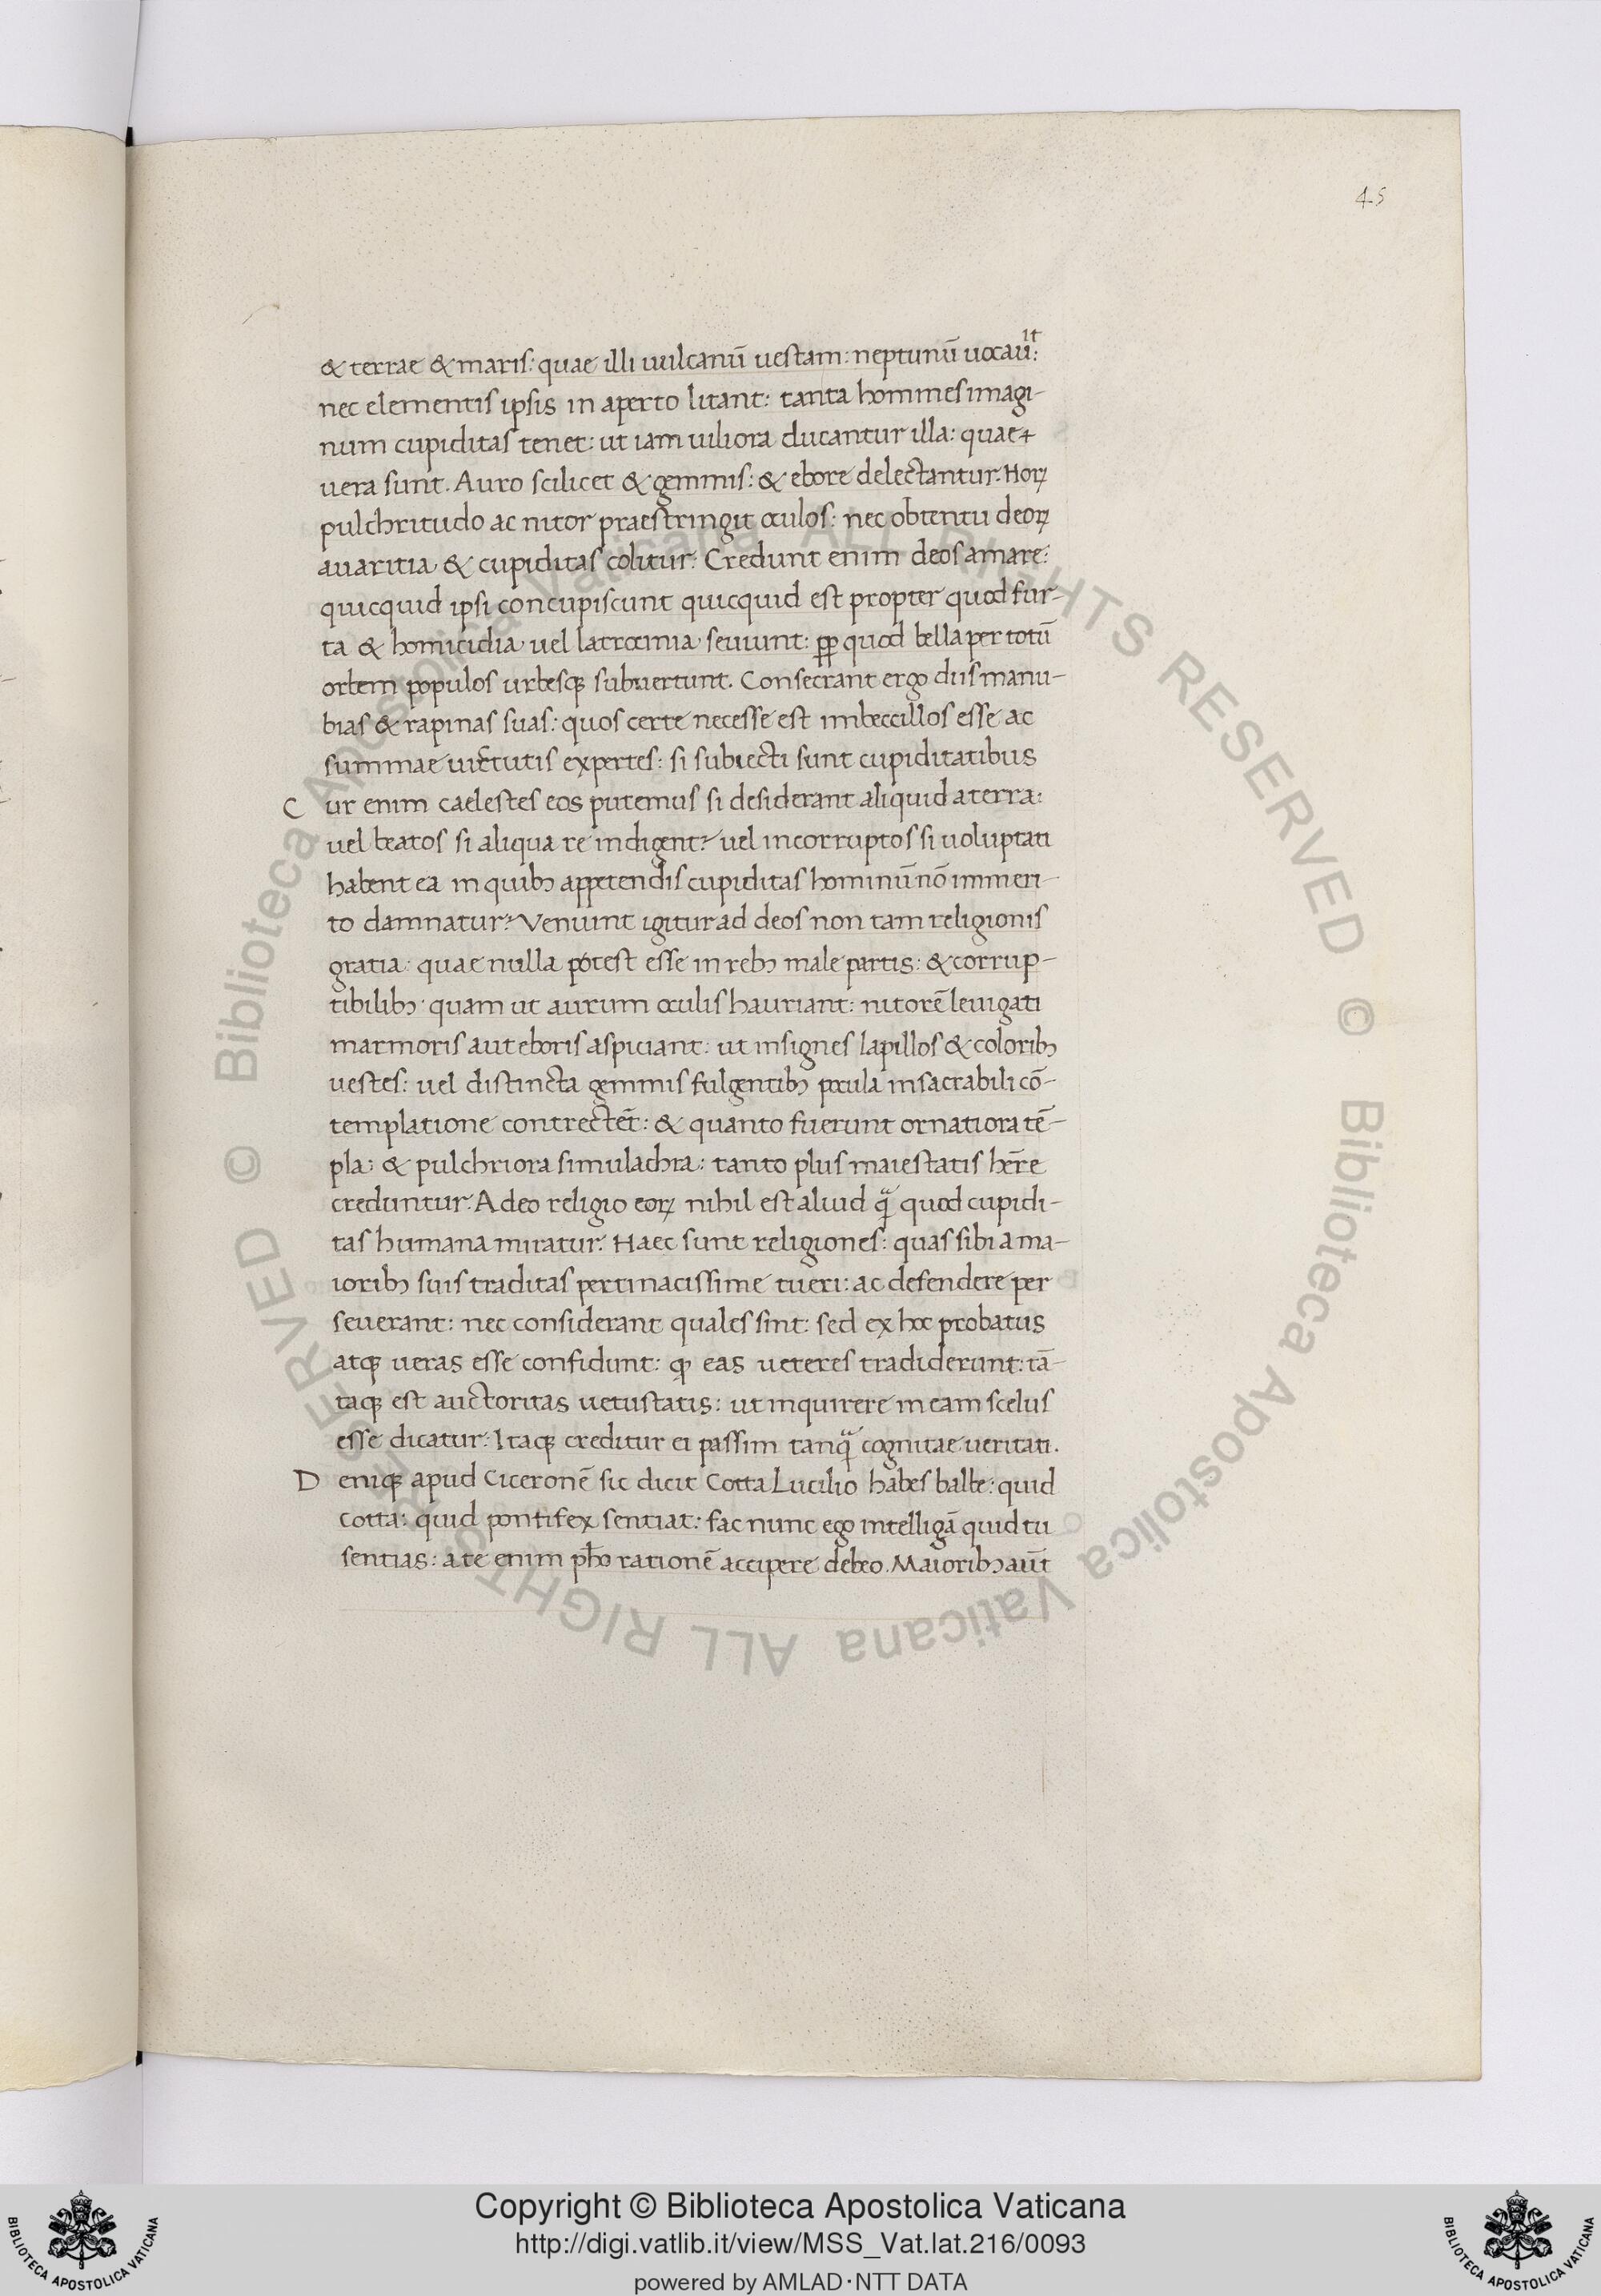 45
& terrae & maris: quae illi uulcanū uestam: neptunū uocaūit:
nec elementis ipsis in aperto litant: tanta homines imagi-
num cupiditas tenet: ut iam uiliora ducantur illa: quae
uera sunt. Auro scilicet & gemmis: & ebore delectantur. Hoꝝ
pulchritudo ac nitor praestringit oculos: nec obtentu deoꝝ
auaritia & cupiditas colitur: Credunt enim deos amare:
quicquid ipsi concupiscunt quicquid est propter quod fur-
ta & homicidia uel latrocinia seuiunt: ꝓp quod bella per totū
orbem populos urbesqꝫ subuertunt. Consecrant ergo diis manu-
bias & rapinas suas: quos certe necesse est imbeccillos esse ac
summae uirtutis expertes: si subiecti sunt cupiditatibus
Cur enim caelestes eos putemus si desiderant aliquid a terra:
uel beatos si aliqua re indigent? uel incorruptos si uoluptati
habent ea in quibꝫ appetendis cupiditas hominū nō immeri-
to damnatur? Veniunt igitur ad deos non tam religionis
gratia: quae nulla potest esse in rebꝫ male partis: & corrup-
tibilibꝫ quam ut aurum oculis hauriant: nitorē leuigati
marmoris aut eboris aspiciant: ut insignes lapillos & coloribꝫ
uestes: uel distincta gemmis fulgentibꝫ pocula insacrabili cō-
templatione contrectēt: & quanto fuerunt ornatiora tē-
pla: & pulchriora simulachra: tanto plus maiestatis hr̄e
creduntur. Adeo religio eoꝝ nihil est aliud qͣ̃ quod cupidi-
tas humana miratur. Haec sunt religiones: quas sibi a ma-
ioribꝫ suis traditas pertinacissime tueri: ac defendere per
seuerant: nec considerant quales sint: sed ex hoc probatus
atqꝫ ueras esse confidunt: ꝙ eas ueteres tradiderunt: tā-
taqꝫ est auctoritas uetustatis: ut inquirere in eam scelus
esse dicatur: Itaqꝫ creditur ei passim tanqͣ̃ cognitae ueritati.
Deniqꝫ apud Ciceronē sic dicit Cotta Lucilio habes balbe: quid
cotta: quid pontifex sentiat: fac nunc ego intelligā quid tu
sentias: a te enim ph̄o rationē accipere debeo. Maioribꝫ aūt
Copyright © Biblioteca Apostolica Vaticana
http://digi.vatlib.it/view/MSS_Vat.lat.216/0093
powered by AMLAD·NTT DATA
BIBLIOTECA APOSTOLICA VATICANA
BIBLIOTECA APOSTOLICA VATICANA
© Biblioteca Apostolica Vaticana ALL RIGHTS RESERVED © Biblioteca Apostolica Vaticana ALL RIGHTS RESERVED